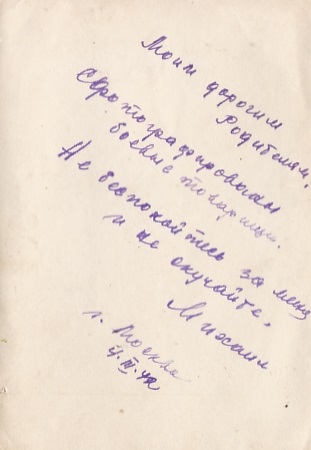 Моим дорогим
родителям.
Сфотографированы
боевые товарищи.
Не беспокойтесь за меня
и не скучайте.
Михаил
г. Москва
4.IV.42